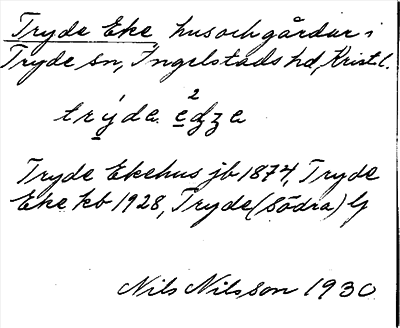 Tryde Eke hus och gårdar i
Tryde sn, Ingelstads hd, Krist l.
2
trýda eʒa
Tryde Ekehus jb 1874, Tryde
Eke kb 1928, Tryde (södra) G
Nils Nilsson 1930